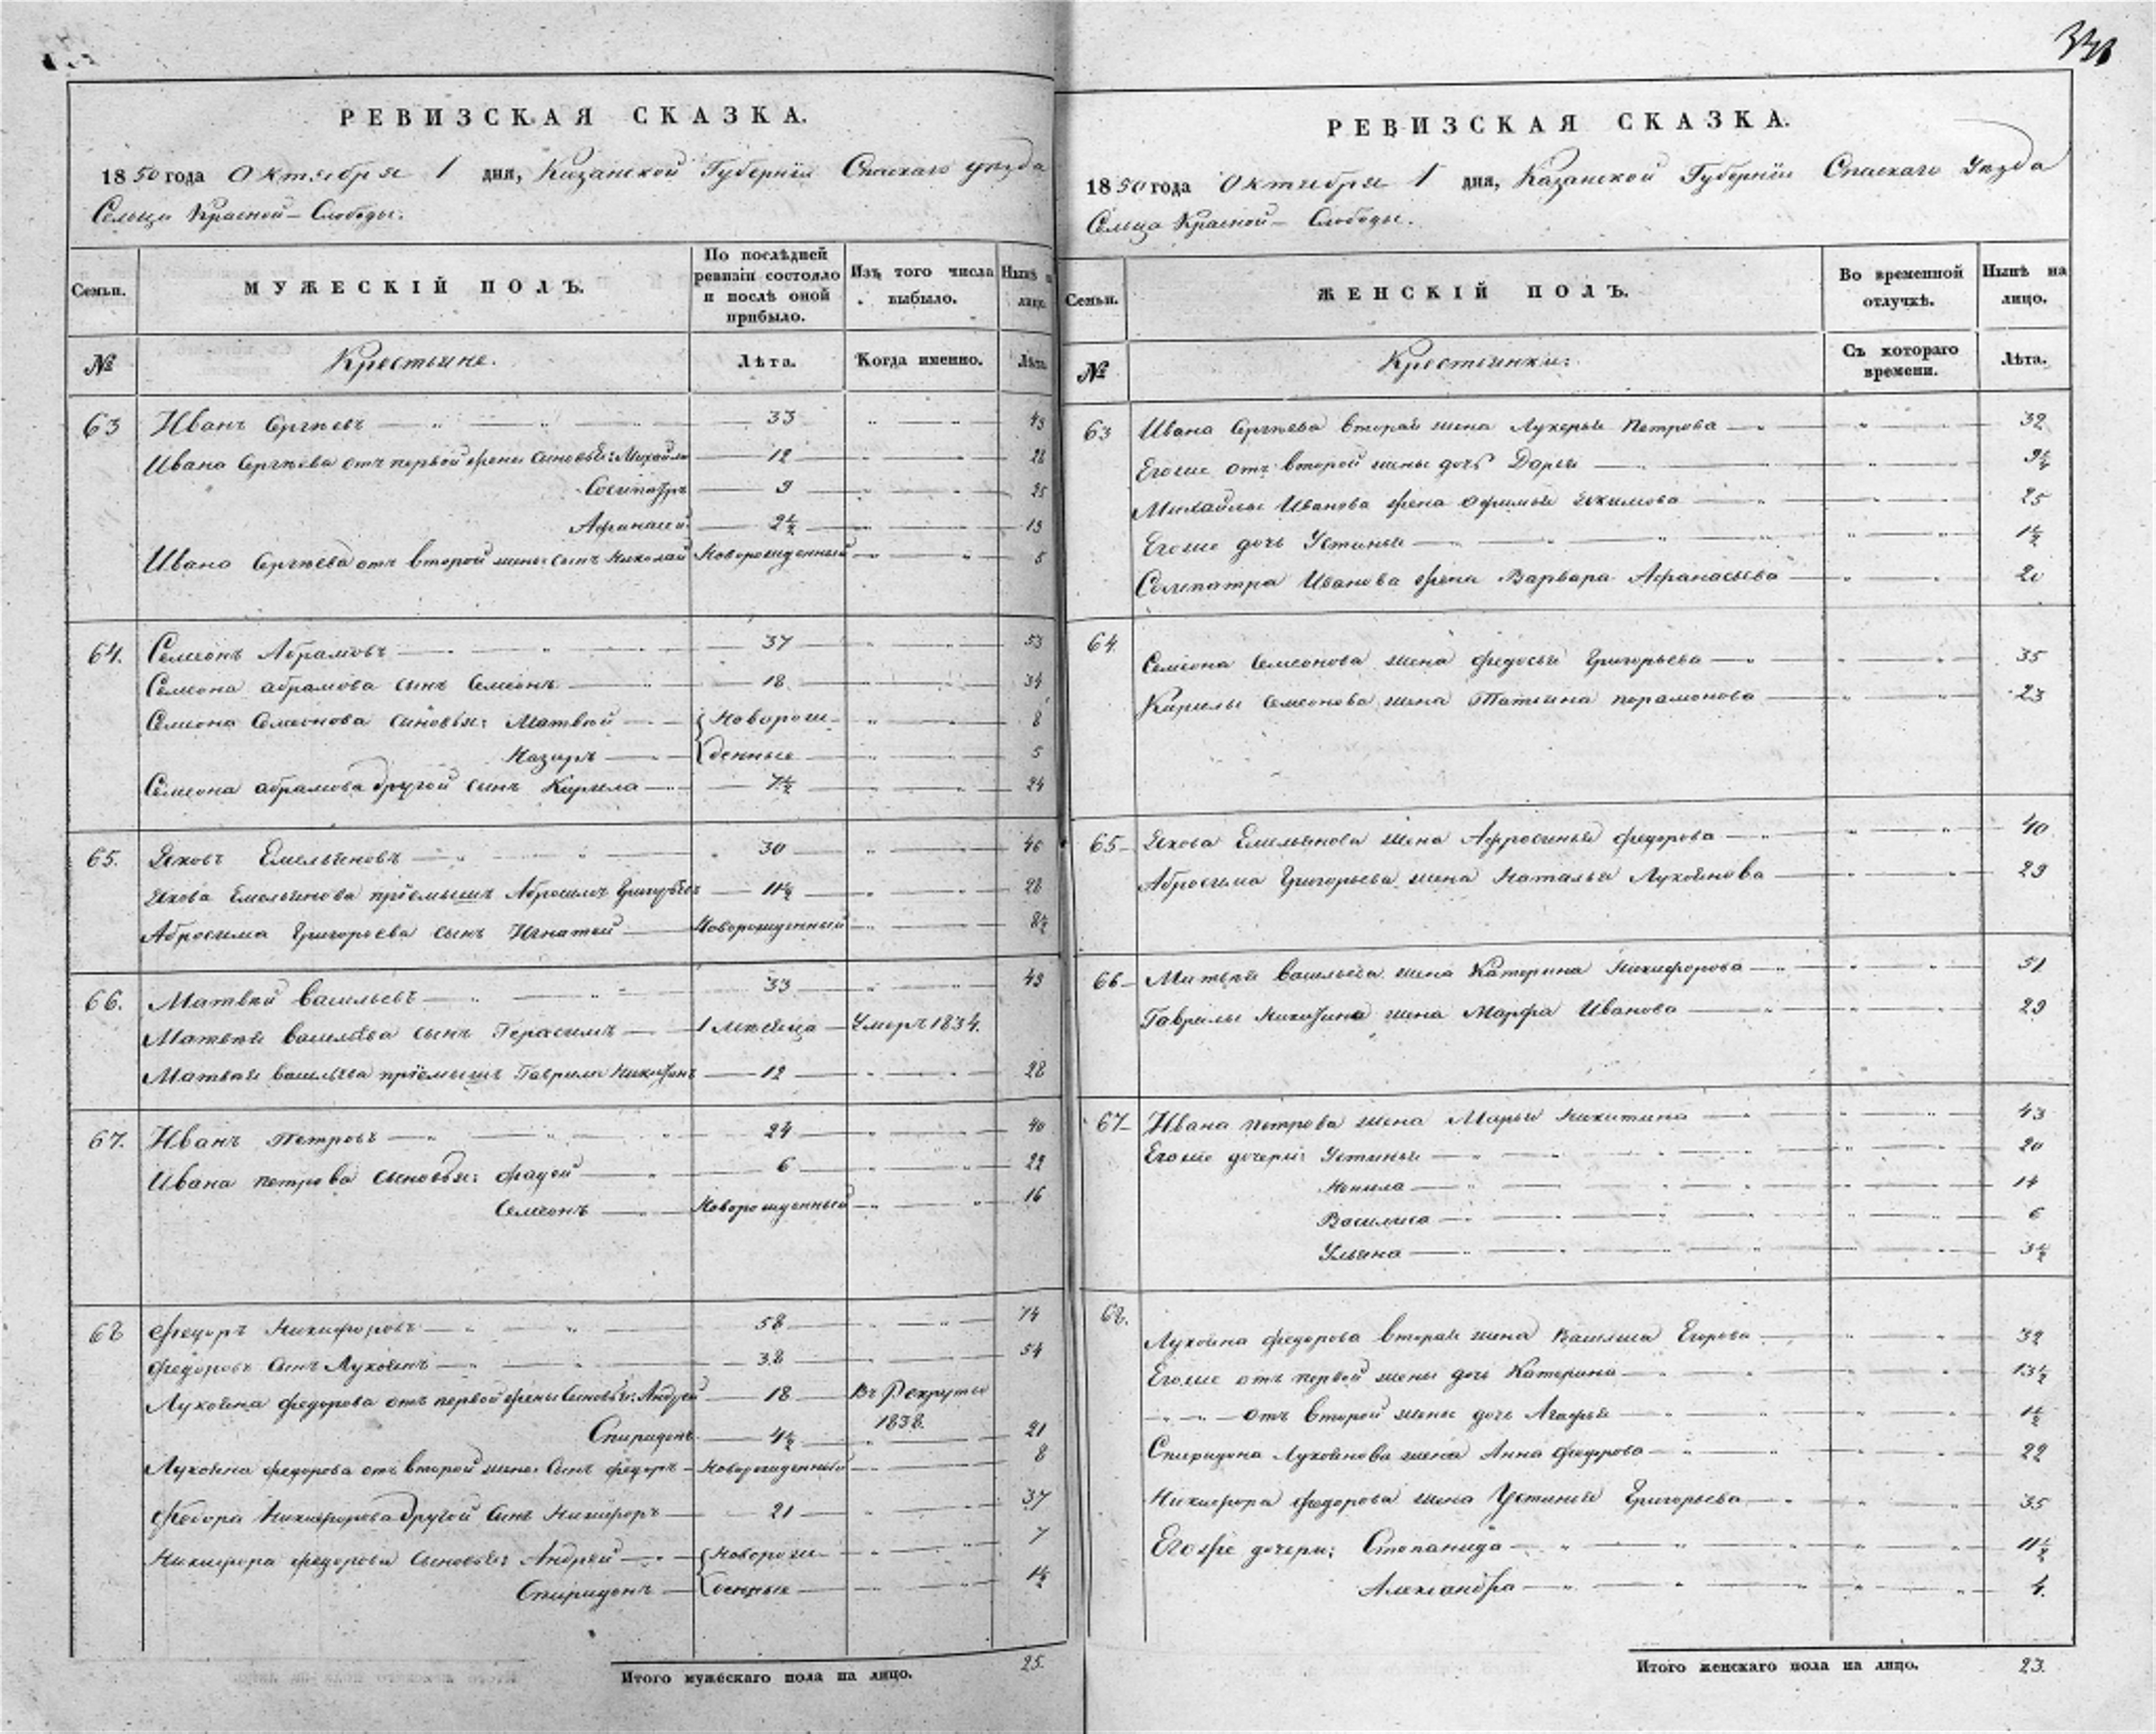 РЕВИЗСКАЯ СКАЗКА.
1850 года Октября 1 дня, Казанской Губерніи Спаскаго уѣзда
Сельца Красной-Слободы.
Семьи.
МУЖЕСКІЙ ПОЛЪ.
По послѣдней ревизіи состояло и послѣ оной прибыло.
Изъ того числа выбыло.
Нынѣ на лицо.
№
Крестьяне.
Лѣта.
Когда именно.
Лѣта.
63 Иванъ Сергѣевъ 33 49
Ивана Сергѣева отъ первой жены сыновья: Михайла 12 28
Сосипатръ 9 25
Афанасій 2½ 19
Ивана Сергѣева отъ второй жены сынъ Николай Новорожденный 5
64. Семенъ Абрамовъ 37 53
Семена абрамова сынъ Семенъ 18 34
Семена Семенова сыновья: Матвей Новорож- 8
Назаръ денные 5
Семена абрамова другой сынъ Кирила 7½ 24
65. Яковъ Емельяновъ 30 46
Якова Емельянова пріемышъ Абросимъ Григорьевъ 11½ 28
Абросима Григорьева сынъ Игнатей Новорожденный 8½
66. Матвей Васильевъ 33 49
Матвея Васильева сынъ Герасимъ 1 мѣсяца Умеръ 1834.
Матвея Васильева пріемышъ Гаврила Никитинъ 12 28
67. Иванъ Петровъ 24 40
Ивана петрова сыновья: фадей 6 22
Семенъ Новорожденный 16
68 Федоръ Никифоровъ 58 74
федоровъ сынъ Лукоянъ 38 54
Лукояна федорова отъ первой жены сыновья: Андрей 18 Въ Рекруты
1838.
Спиридонъ 4½ 21
Лукояна федорова отъ второй жены сынъ федоръ Новорожденный 8
Федора Никифорова другой сынъ Никифоръ 21 37
Никифора федорова сыновья: Андрей Новорож- 7
Спиридонъ денные 1½
Итого мужескаго пола на лицо. 25.
РЕВИЗСКАЯ СКАЗКА.
1850 года Октября 1 дня, Казанской Губерніи Спаскаго Уѣзда
Сельца Красной-Слободы.
Семьи.
ЖЕНСКІЙ ПОЛЪ.
Во временной отлучкѣ.
Нынѣ на лицо.
№
Крестьянки:
Съ котораго времени.
Лѣта.
63 Ивана Сергѣева вторая жена Лукерья Петрова 32
Егоже отъ второй жены дочь Дарья
Михайлы Иванова жена Офимья Якимова 25
Егоже дочь Устинья 1½
Сосипатра Иванова жена Варвара Афанасьева 20
64. Семена Семенова жена федосья Григорьева 35
Кирилы Семенова жена Татьяна парамонова 23
65 Якова Емельянова жена Афросинья федорова 40
Абросима Григорьева жена Наталья Лукоянова 29
66 Матвея Васильева жена Катерина Никифорова 51
Гаврилы Никитина жена Марфа Иванова 29
67 Ивана петрова жена Марья Никитина 43
Егоже дочери: Устинья 20
Ненила 14
Василиса 6
Ульяна 3½
68. Лукояна федорова вторая жена Василиса Егорова 32
Егоже отъ первой жены дочь Катерина 13½
отъ второй жены дочь Агафья 1½
Спиридона Лукоянова жена Анна федорова 22
Никифора федорова жена Устинья Григорьева 35
Егоже дочери: Степанида 11½
Александра 4.
Итого женскаго пола на лицо. 23.